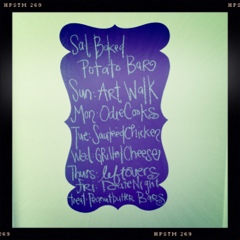 HPSTM 269
Sat Baked
Potato Bar
Sun: Art Walk
Mon Odie Cooks
Tue: Sauteed Chicken
Wed Grilled Cheese
Thurs: leftovers
Fri: Date Night
Treat Peanutbutter Bars
HPSTM 269